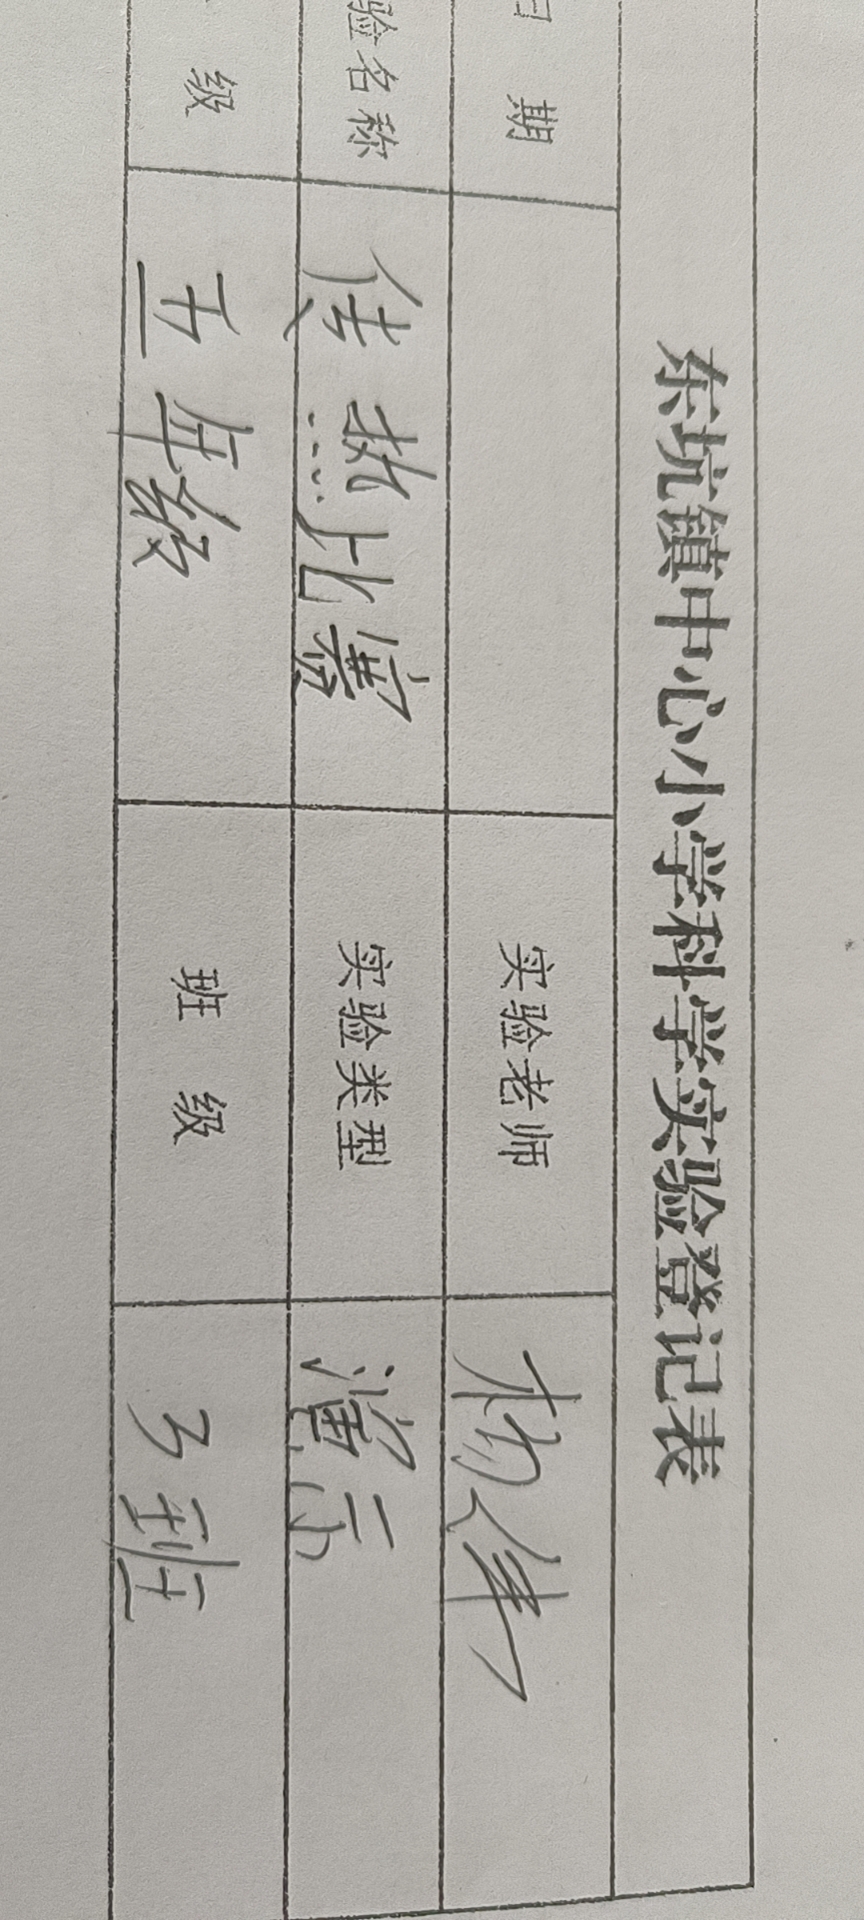 东坑镇中心小学科学实验登记表
日 期 实验老师 杨伟
验名称 传热比赛 实验类型 演示
级 五年级 班 级 3班